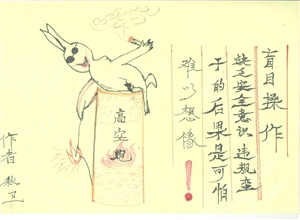 盲目操作
缺乏安全意识 违规
的后果是可怕
难以想像！
高空
作者